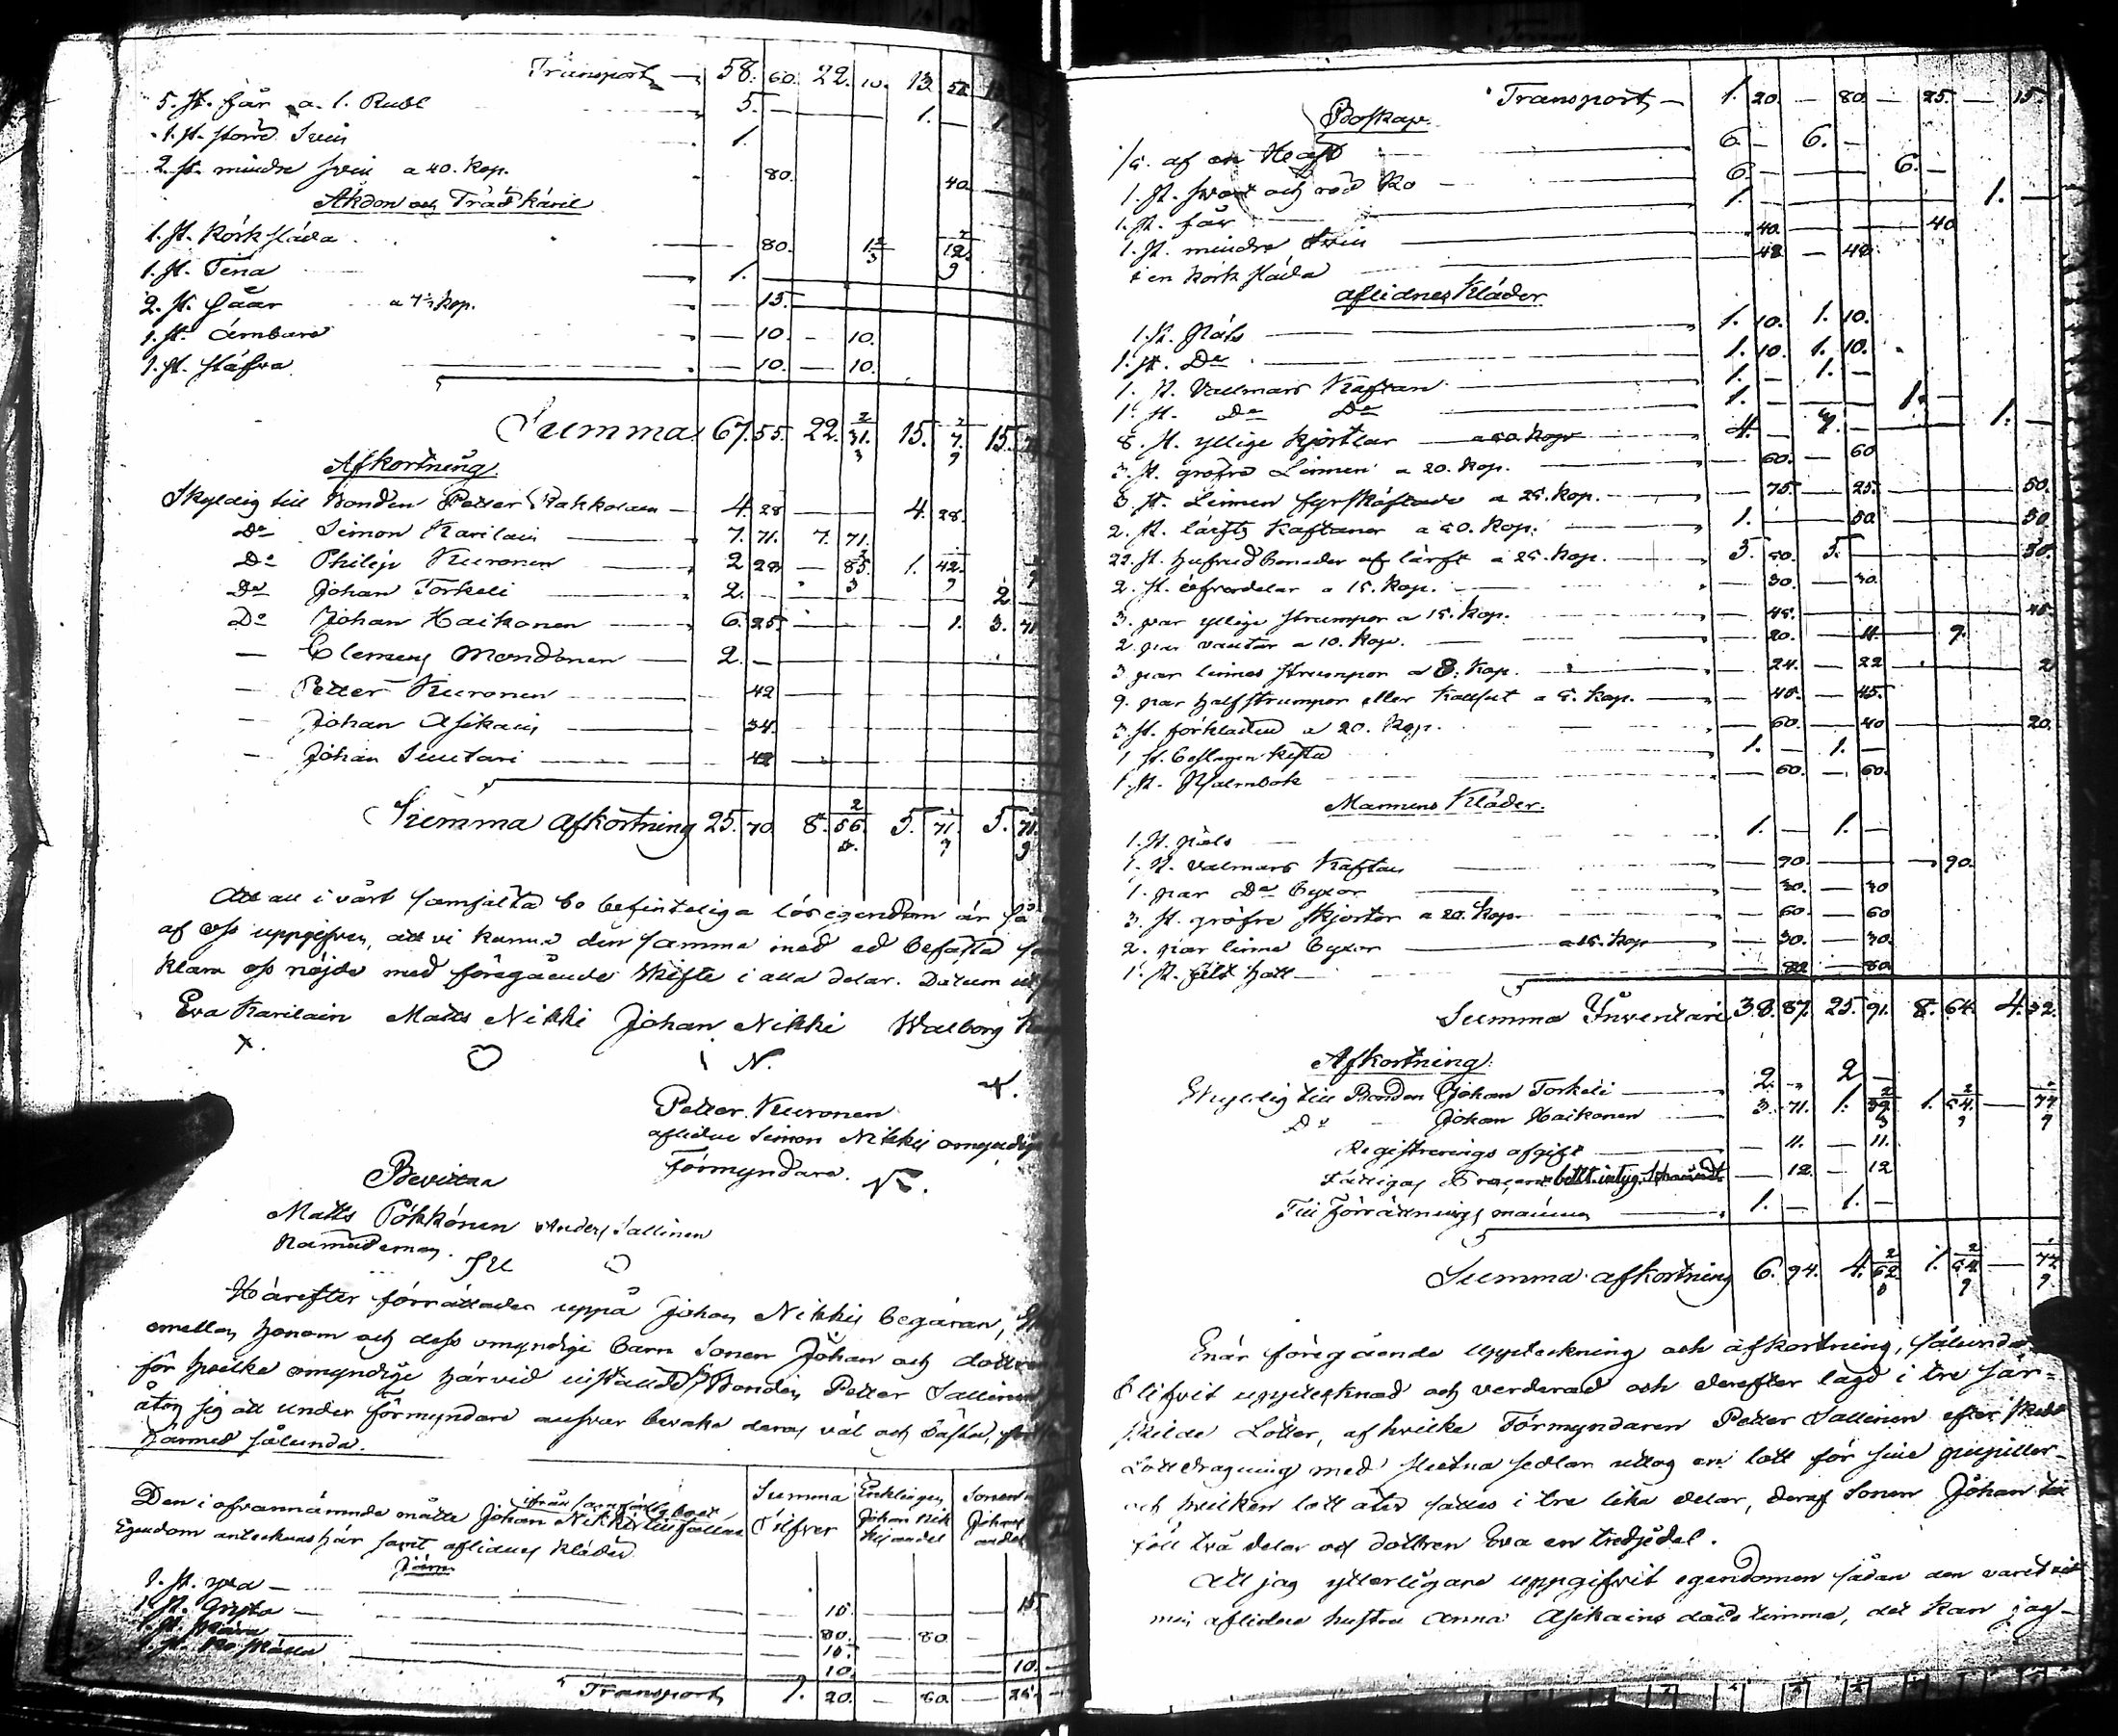 Transport — 58. 60. 22. 10. 13.
5. st. får a. 1. Rubl 5. — 1. — 1.
1. st. större Svin 1.
2. st. mindre svin a 40. kop. 80. 40.
Åkdon och Trädkäril
1. st. Körksläda 80. 12
1. st. Tina 1.
2. st. Såar a 7½ kop. 15.
1. st. Ämbare — 10. — 10.
1. st. stäfva — 10. — 10.
Summa 67. 55. 22. 31. 15. 7. 15.
Afkortning
Skyldig till Bonden Petter Rahkolain — 4. 28 — 4. 28.
Do Simon Karilain — 7. 71. 7. 71.
Do Philip Kuronen 2 28 — 85. 1. 42.
Do Johan Torkeli 2. 2.
Do Johan Haikonen 6. 25. 1. 3. 71
— Clemens Mondonen 2. —
— Petter Kuronen 42
— Johan Asikain 34.
— Johan Suutari 42
Summa afkortning 25. 70. 8. 56. 5. 71. 5. 71.
Att all i vårt samfälta bo befinteliga lösegendom är så
af oss uppgifven, att vi kunna den samma med ed befästa
klara oss nöjde med föregående skifte i alla delar. Datum ut
Eva Karilain Matts Nikki Johan Nikki Walborg
x. N.
Petter Kuronen
aflidne Simon Nikkis omyndige
Förmyndare.
Bevittna
Matts Pökkönen Anders Sallinen
Nämndeman.
Härefter förrättades uppå Johan Nikkis begäran,
emellan honom och dess omyndige barn Sonen Johan och dottren
för hvilke omyndige härvid inställde Bonden Petter Sallinen
åtog sig att under förmyndare ansvar bevaka deras väl och bästa,
härmed sålunda.
Den i ofvannämnde måtte Johan Nikki ifrån samfälta boet tillfallna Summa Enklingen Sonen
Egendom antecknas här samt aflidnes kläder Silfver Johan Nikkis andel Johans andel
Järn
1. st. yxa — 15. 15.
1. st. Gryta — 80. — 80.
1. st. skära 10.
1. st. Ko skälla 10. 10.
Transport 1. 20. — 80. — 25.
Transport — 1. 20. — 80. — 25. — 15.
Boskap.
af en Häst 6. — 6. —
1. st. svart och röd Ko — 6. — 6. —
1. st. får 1. — 1. —
1. st. mindre Svin 40. 40
i en Körk släda 48 — 48.
aflidnes Kläder
1. st. Päls — 1. 10. 1. 10.
1. st. Do — 1. 10. 1. 10.
1. st. Vallmars Kaftan — 1. — 1. —
1. st. Do Do 1. — 1. —
8. st. yllige kjortlar — a 50. kop 4. — 2. — 1. — 1. —
3. st. gröfre Linnen a 20. kop. — 60. — 60
3. st. Linnen fyrskäftade a 25. kop. — 75. — 25. — 50.
2. st. lärfts Kaftaner a 50. kop. 1. — 50. — 50
22. st. hufvudbonader af lärft a 25. kop. 5. 50. 5. — 50.
2. st. öfverdelar a 15. kop. — 30. — 30.
3. par yllige strumpor a 15. kop. — 45. — 45.
2. par vantar a 10. kop. — 20. — 11 — 9.
3. par linnes strumpor a 8. kop. — 24. — 22 — 2
9. par half strumpor eller Kallsut a 5. kop. — 45. — 45.
3. st. förkläden a 20. kop. — 60. — 40 — 20.
1 st. beslagen kista 1. — 1. —
1. st. Psalmbok — 60. — 60.
Mannens Kläder.
1. st. päls 1. — 1. —
1. st. valmars Kaftan — 90. — 90.
1. par Do Byxor — 30. — 30
3. st. gröfre skjortor a 20. kop. — 60. — 60
2. par linne byxor — a 15. kop — 30. — 30.
1. st. Filt hatt — 80 — 80
Summa Inventari 38. 87. 25. 91. 8. 64. 4. 32.
Afkortning.
Skyldig till Bonden Johan Torkeli — 2. — 2 —
Do Johan Haikonen — 3. 71. 1. 39. 1. 54. — 77
Registrerings afgift — 11. — 11.
Fattiges — 12. — 12
Till Förrättnings männen — 1. — 1. —
Summa afkortning 6. 94. 4. 62. 1. 54. — 77.
Enär föregående uppteckning och afkortning, sålunda
blifvit upptecknad och verderad och derefter lagd i tre sär-
skilde Lotter, af hvilke Förmyndaren Petter Sallinen efter skedd
Lottdragning med slutna sedlar uttog en lott för sine pupiller
och hvilken lott åter sattes i tre lika delar, deraf Sonen Johan till
föll två delar och dottren Eva en tredjedel.
Att jag ytterligare uppgifvit egendomen sådan den varit vid
min aflidne hustru Anna Asikains döds timma, det kan jag